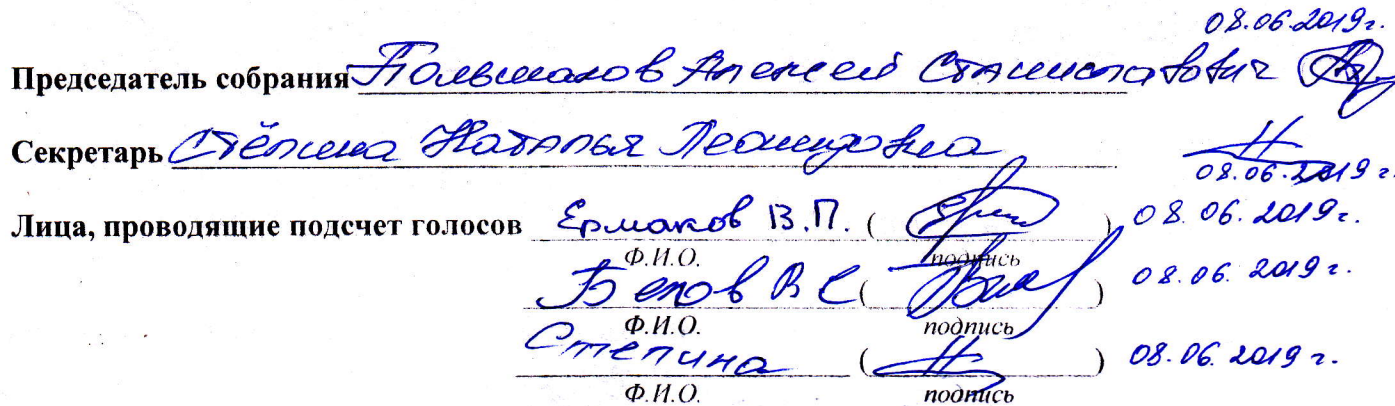 08.06.2019г.
Председатель собрания Польшаков Алексей Станиславович
Секретарь Стёпина Наталья Леонидовна
08.06.2019 г.
Лица, проводящие подсчет голосов Ермаков В.П. ( ) 08.06.2019г.
Ф.И.О. подпись
Белов В С ( ) 08.06.2019 г.
Ф.И.О. подпись
Степина ( ) 08.06.2019 г.
Ф.И.О. подпись